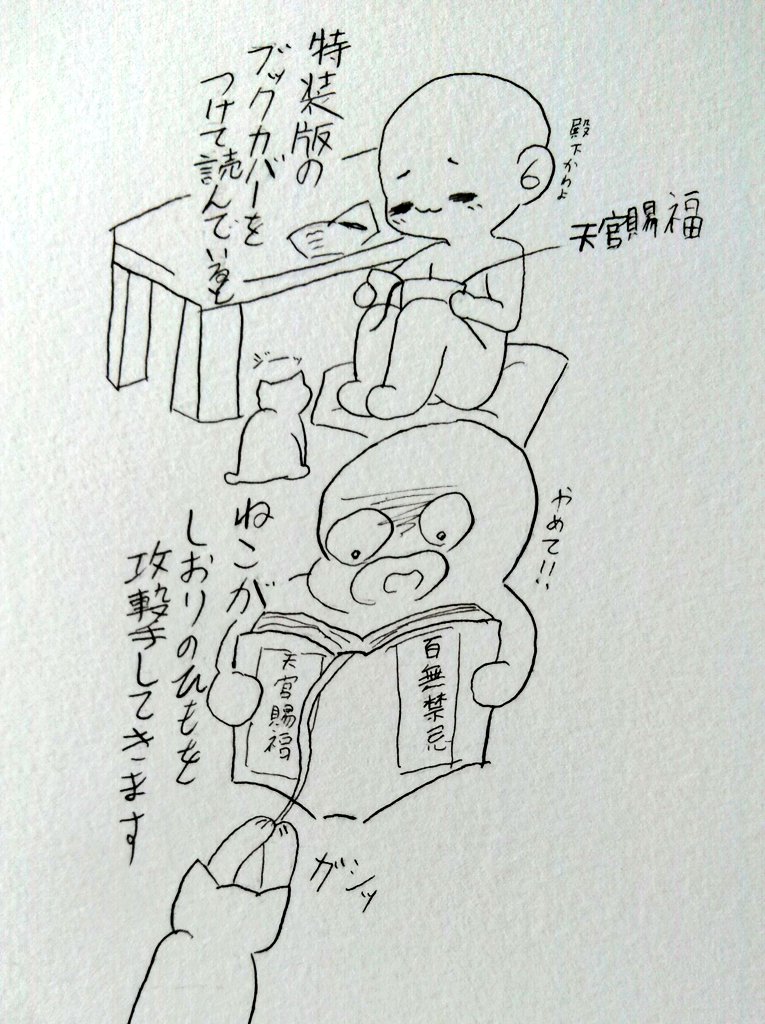 特装版の
ブックカバーを
つけて読んでいると
殿下かわよ
天官賜福
ジーッ
ねこが
しおりのひもを
攻撃してきます
やめて!!
百無禁忌
天官賜福
ガシッ